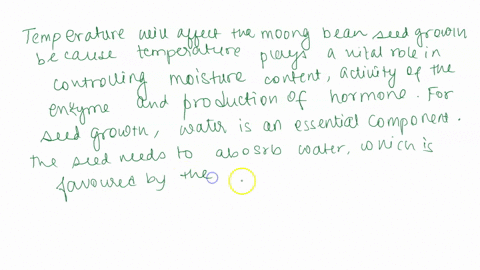 Temperature will affect the moong bean seed growth
because temperature plays a vital role in
controlling moisture content, activity of the
enzyme and production of hormone. For
seed growth, water is an essential component.
the seed needs to abosrb water, which is
favoured by the